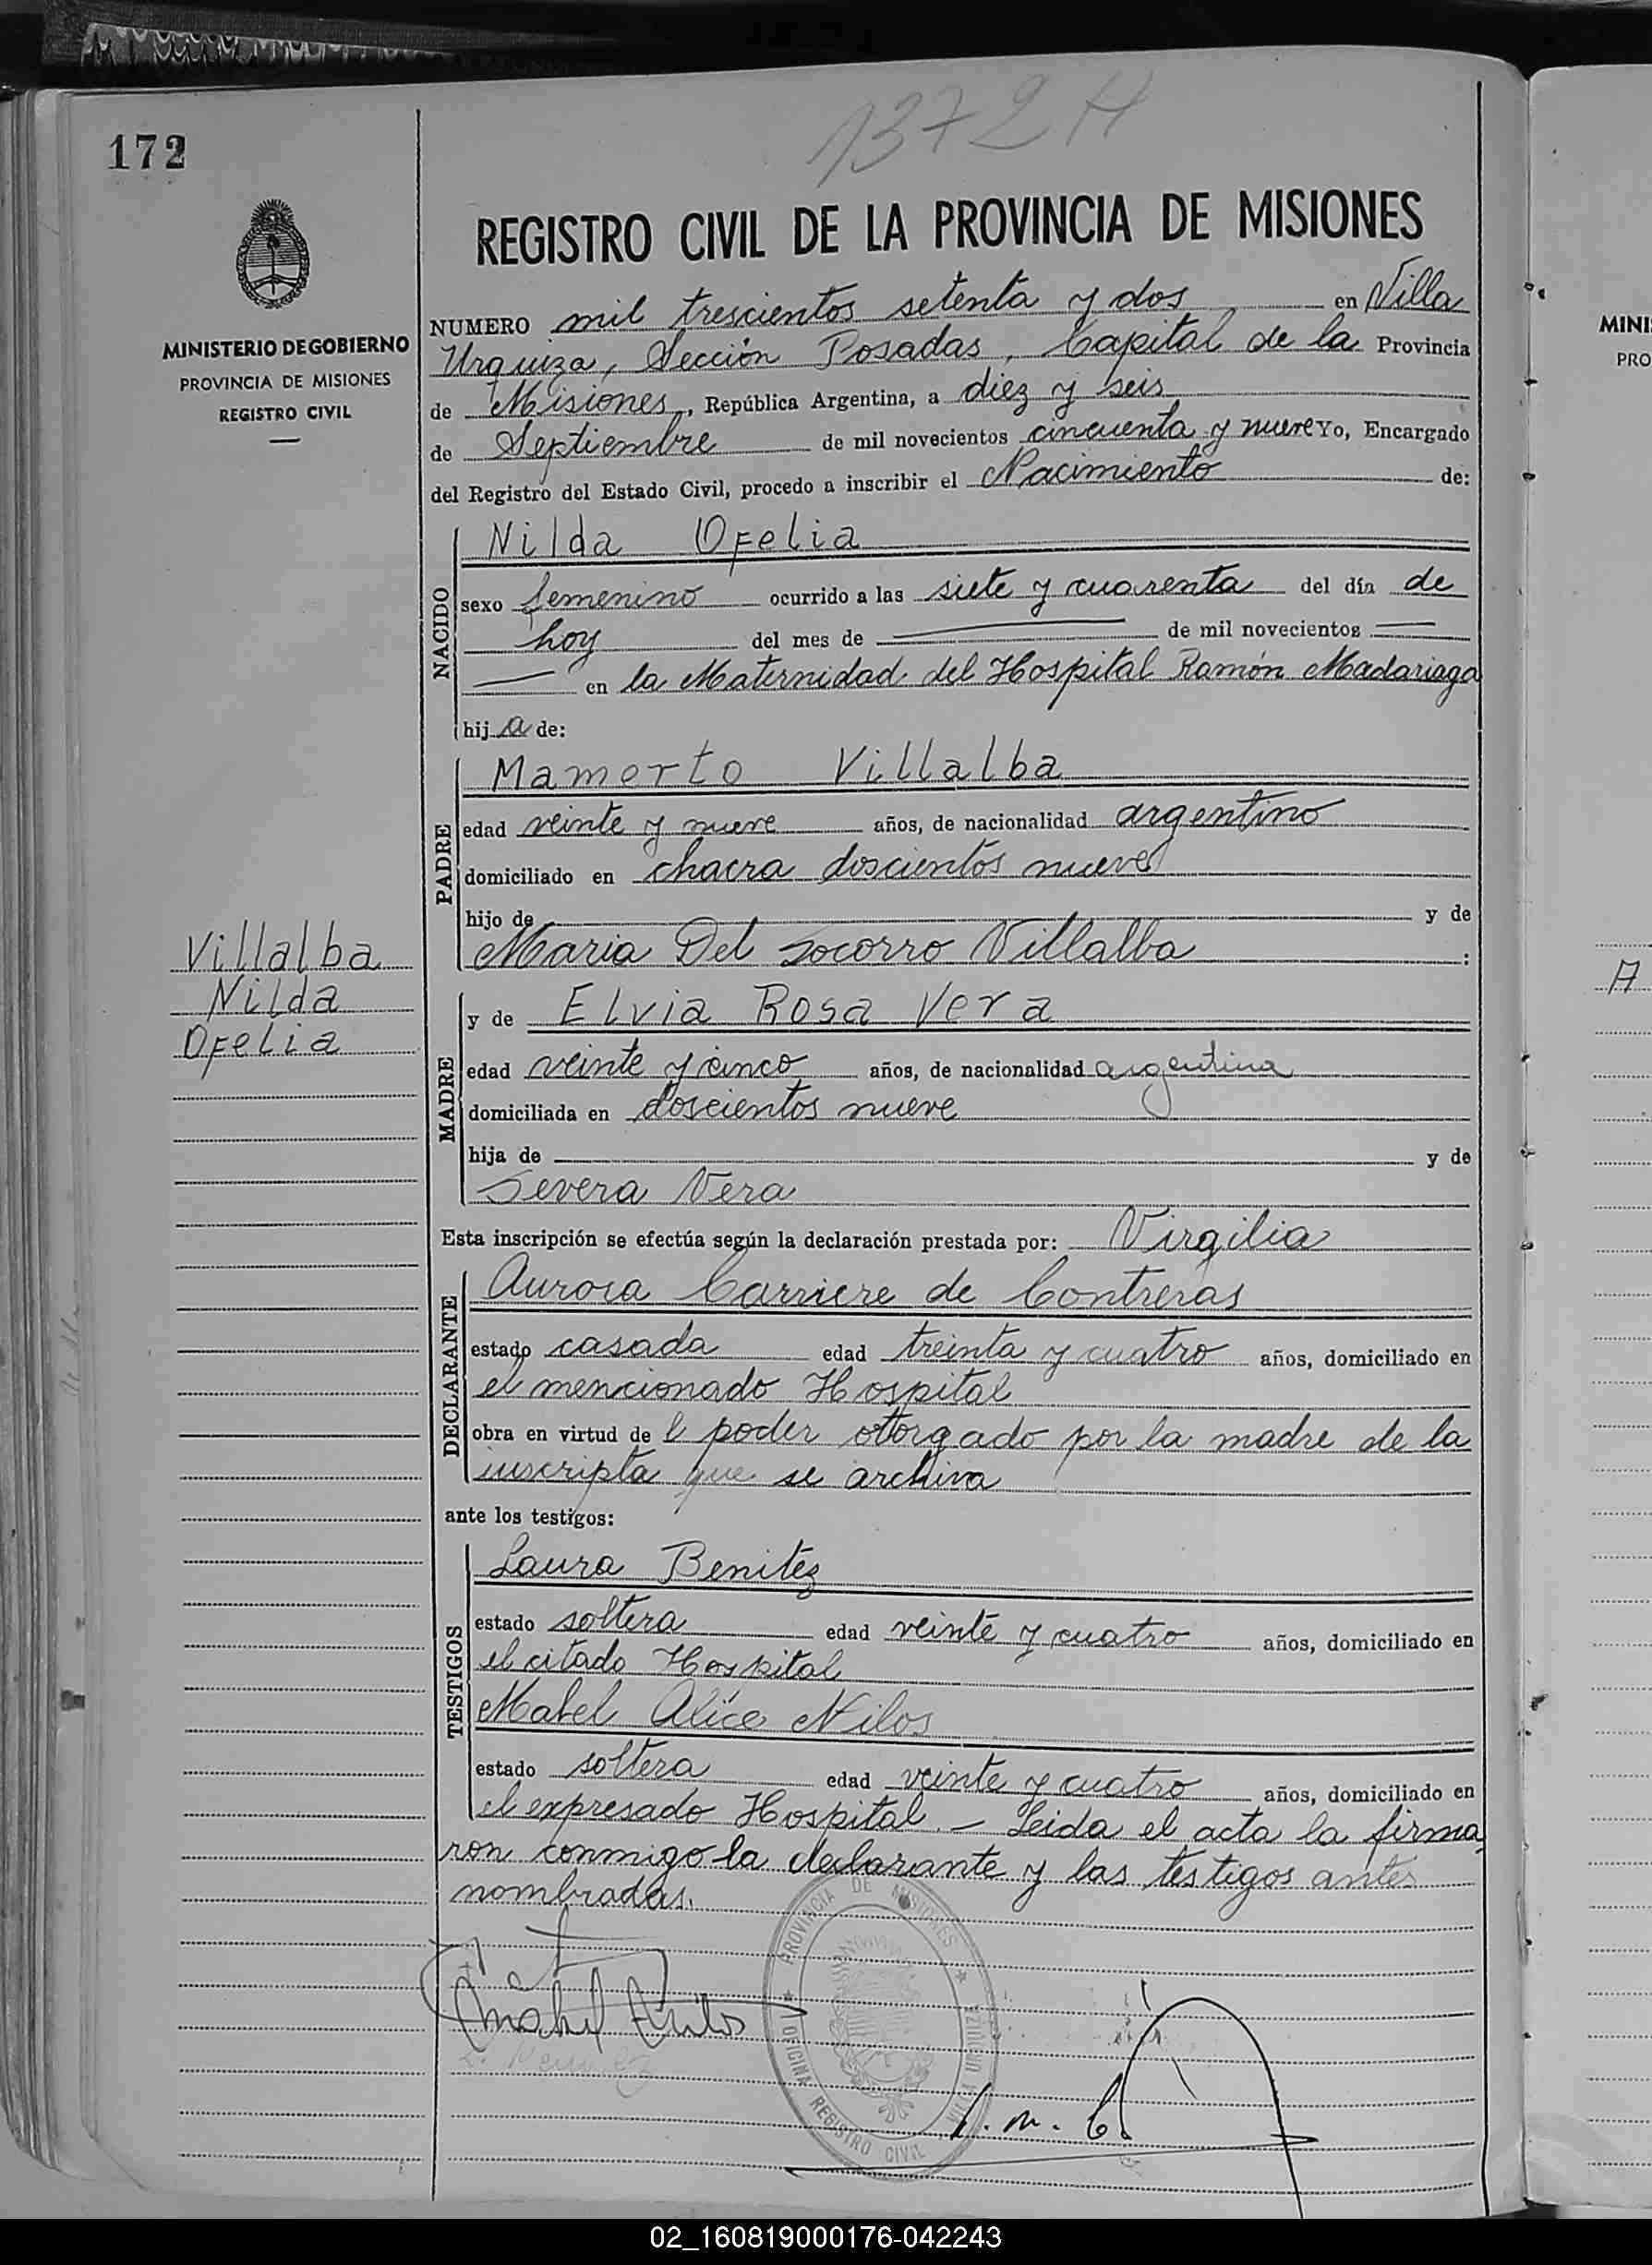 1372 A
172
REGISTRO CIVIL DE LA PROVINCIA DE MISIONES
MINISTERIO DE GOBIERNO
PROVINCIA DE MISIONES
REGISTRO CIVIL
NUMERO mil trescientos setenta y dos en Villa
Urquiza, Sección Posadas, Capital de la Provincia
de Misiones, República Argentina, a diez y seis
de Septiembre de mil novecientos cincuenta y nueve Yo, Encargado
del Registro del Estado Civil, procedo a inscribir el Nacimiento de:
NACIDO
Nilda Ofelia
sexo femenino ocurrido a las siete y cuarenta del día de
hoy del mes de — de mil novecientos —
— en la Maternidad del Hospital Ramón Madariaga
hija de:
PADRE
Mamerto Villalba
edad veinte y nueve años, de nacionalidad argentino
domiciliado en chacra doscientos nueve
hijo de y de
Maria Del Socorro Villalba :
Villalba
Nilda
Ofelia
MADRE
y de Elvia Rosa Vera
edad veinte y cinco años, de nacionalidad argentina
domiciliada en doscientos nueve
hija de y de
Severa Vera
Esta inscripción se efectúa según la declaración prestada por: Virgilia
DECLARANTE
Aurora Carriere de Contreras
estado casada edad treinta y cuatro años, domiciliado en
el mencionado Hospital
obra en virtud del poder otorgado por la madre de la
inscripta que se archiva
ante los testigos:
TESTIGOS
Laura Benitez
estado soltera edad veinte y cuatro años, domiciliado en
el citado Hospital
Mabel Alice Nilos
estado soltera edad veinte y cuatro años, domiciliado en
el expresado Hospital. — Leida el acta la firma
ron conmigo la declarante y las testigos antes
nombradas.
PROVINCIA DE MISIONES
OFICINA REGISTRO CIVIL
MINI
PRO
A
02_160819000176-042243